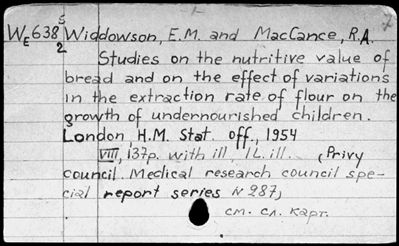 WE638 5/2 Widdowson, E.M. and MacCance, R.A.
Studies on the nutritive value of
bread and on the effect of variations
in the extraction rate of flour on the
growth of undernourished children.
London, H.M. Stat. off., 1954
VIII, 137p. with ill, 1L. ill. (Privy
council. Medical research council spe-
cial report series N 287)
см. сл. карт.